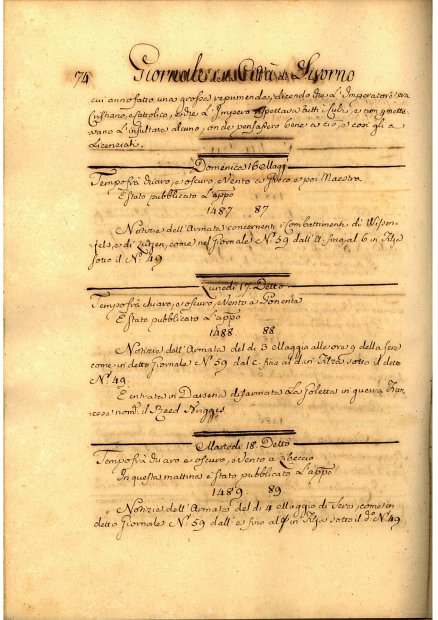 74 Giornale della Città di Livorno
cui anno fatto una grossa reprimenda, dicendo che L'Imperatore era
Cristiano, e Cattolico, e che L'Impero rispettava tutti i Culti, e non permette-
vano L'insultare alcuno, onde pensassero bene a ciò, e così gli a
Licenziati.
Domenica 16 Magg.
Tempo frà chiaro, e oscuro, e Vento a Greco, e poi Maestra
È stato pubblicato L'appo
1487 87
Notizie dell'Armata concernenti i Combattimenti di Wissen-
fels, e di come nel Giornale N.º 59 dall'A. fino al 6 in Filza
sotto il N.º 49
Lunedi 17. Detto
Tempo frà chiaro, e oscuro, e Vento a Ponente
È stato pubblicato L'appo
1488 88
Notizie dell'Armata del di 3 Maggio alle ore 9 della Sera
come in detto Giornale N.º 59 dal c. fino al d. in Filza sotto il detto
N.º 49.
È entrata in Darsena disarmata La Goletta in guerra Fran-
cese nom.
Martedi 18. Detto
Tempo frà chiaro e oscuro, e Vento a Libeccio
In questa mattina è stato pubblicato L'appo
1489 89
Notizie dell'Armata del di 4 Maggio di Sera, come in
detto Giornale N.º 59 dall'e fino al f in Filza sotto il dº Nº 49